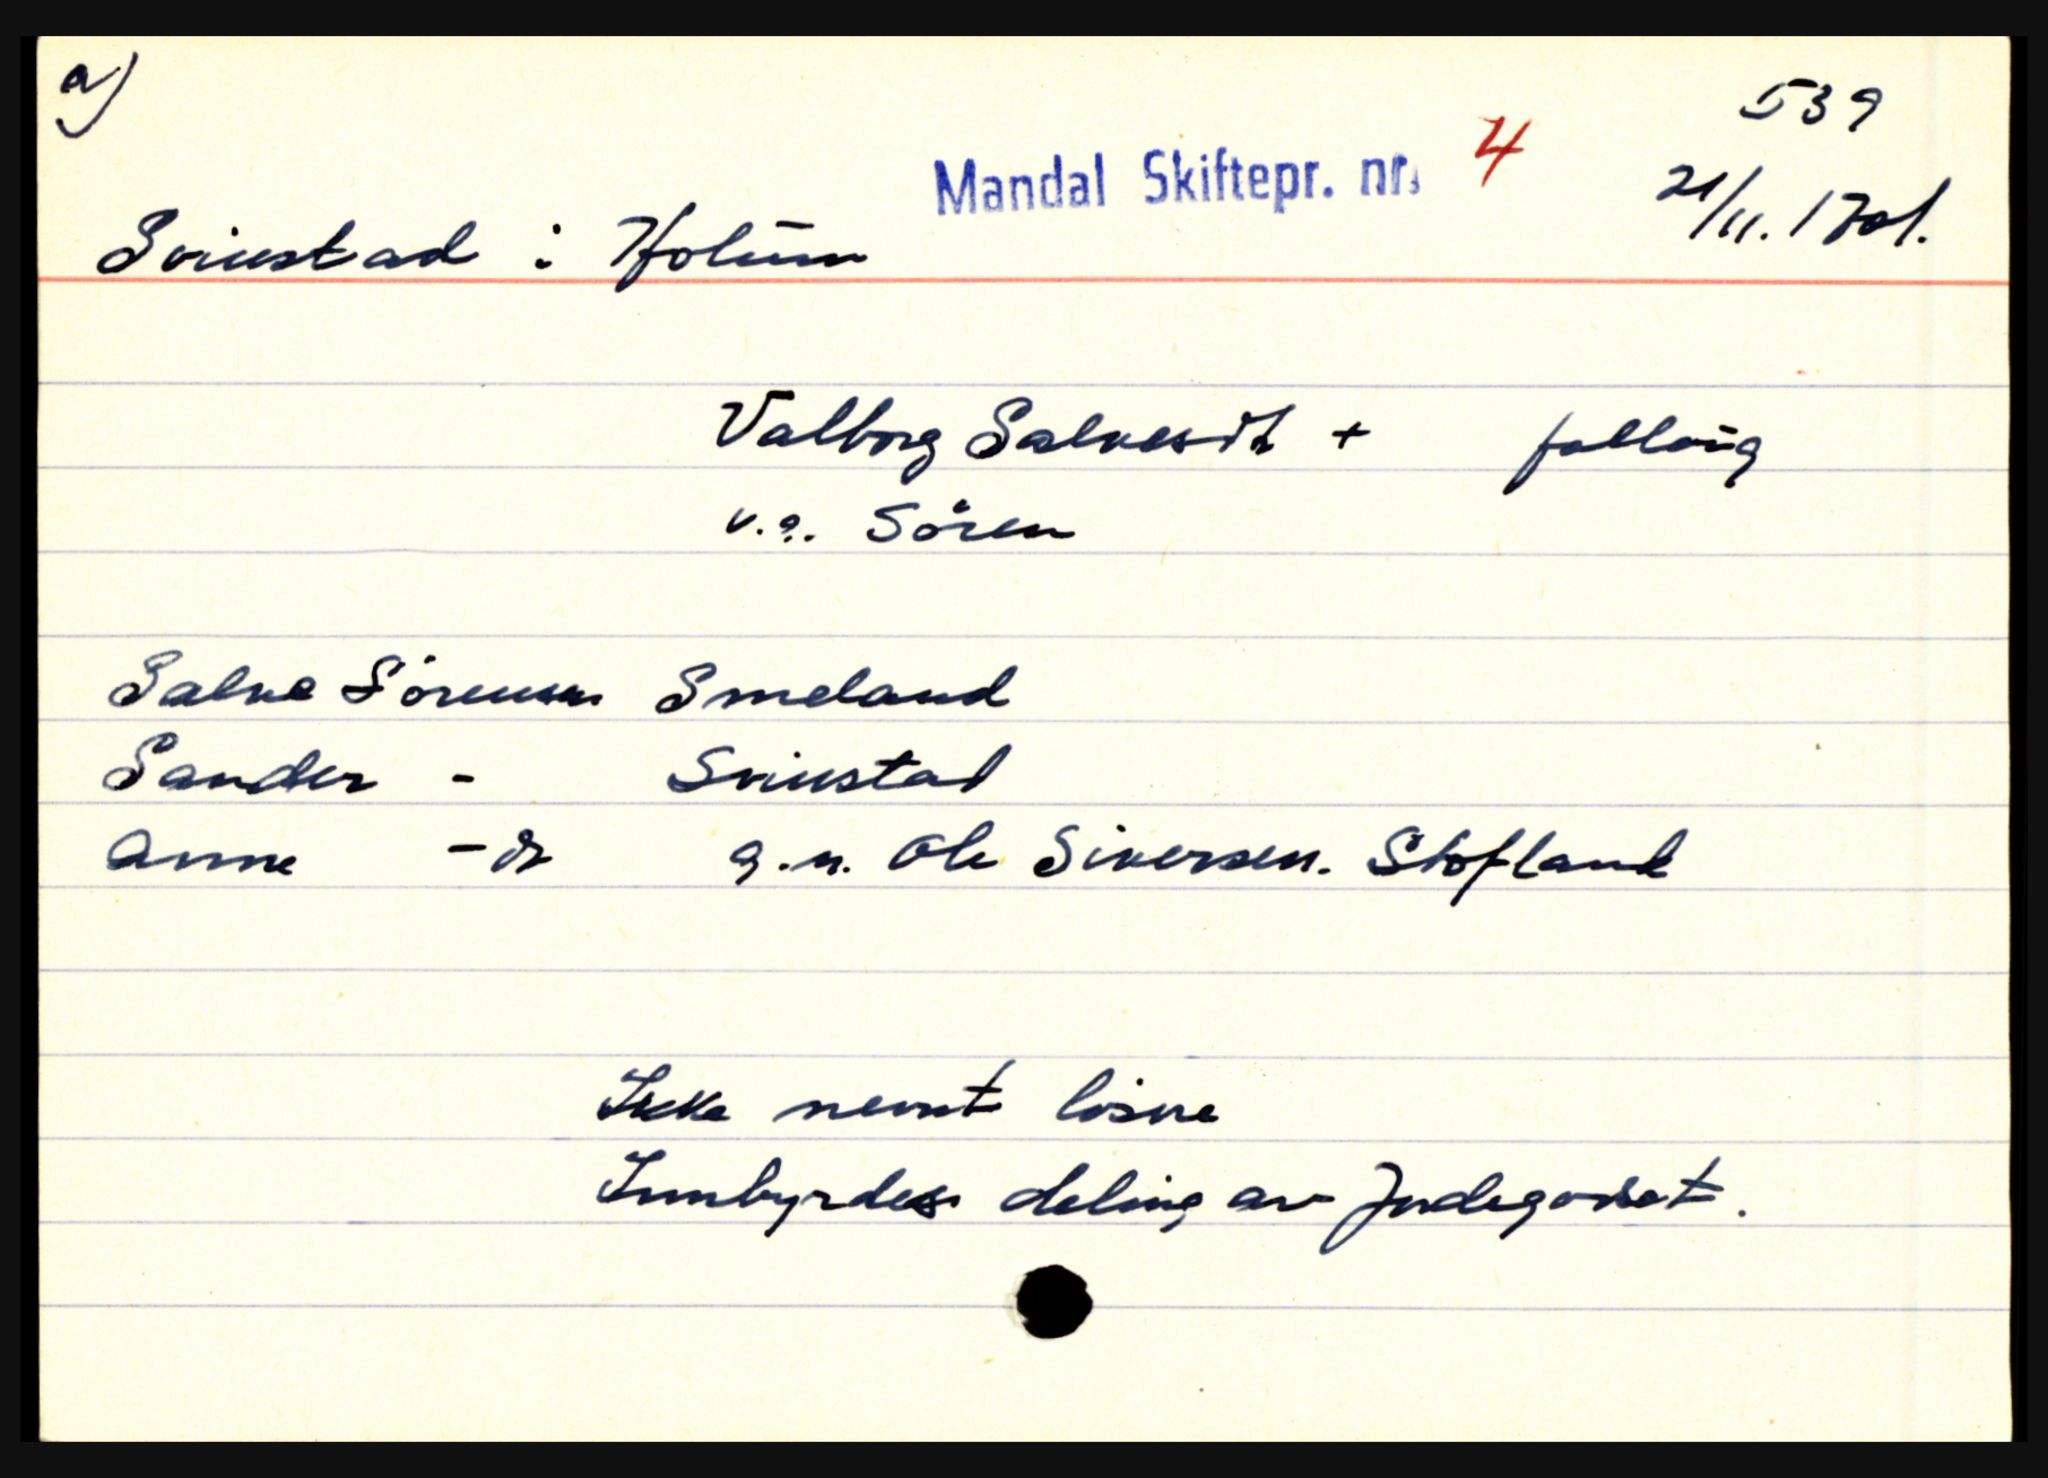 a)
539
Mandal Skiftepr. nr. 4
21/11. 1701.
Svinstad i Holum
Valborg Salvesdt + fallaug
v.g. Sören
Salve Sörensen Smeland
Sander - Svinstad
Anne - dt g.m. Ole Siversen. Stofland
Ikke nevnt lösöre
Innbyrdes deling av Jordegodset.